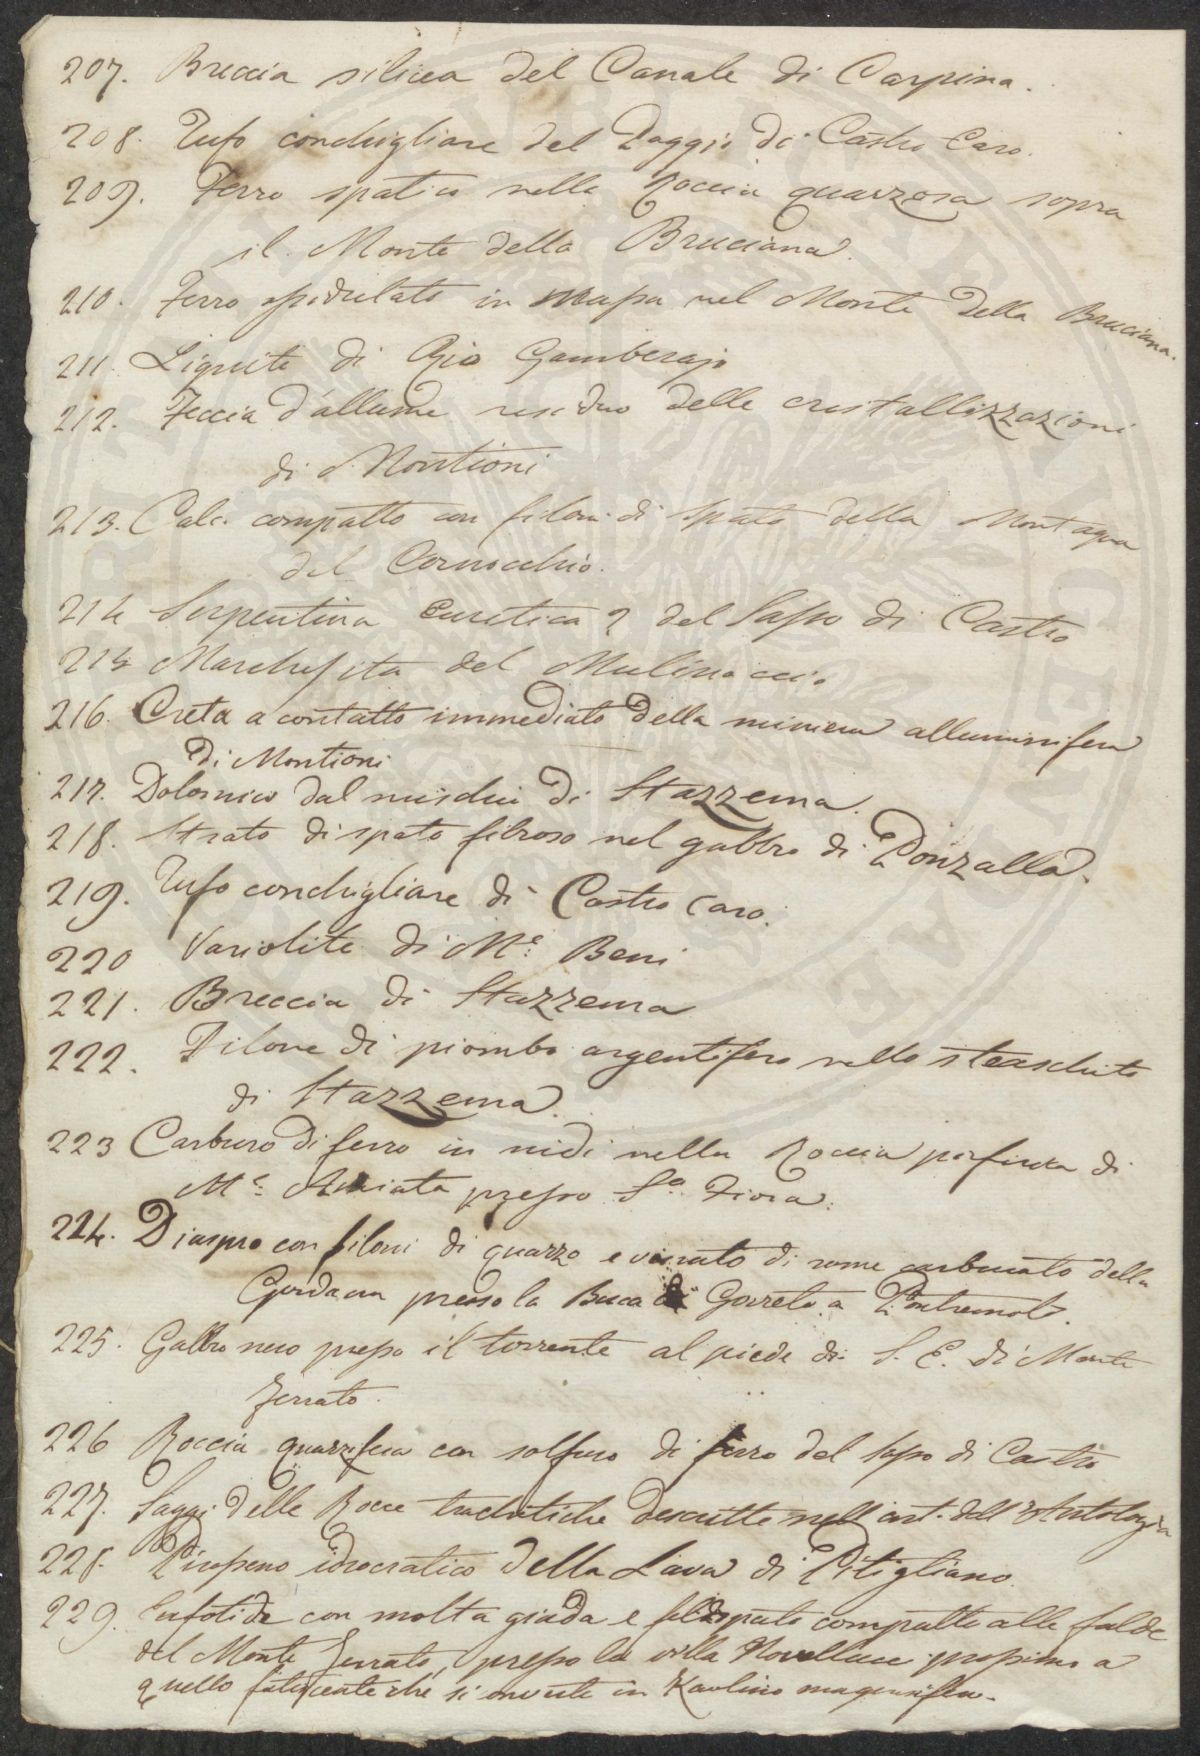 207. Breccia silicea del Canale di Carpina.
208. Tufo conchigliare del Poggio di Castro Caro.
209. Ferro spatico nella Roccia quarzosa sopra
il Monte della Bruciana.
210. Ferro ossidulato in massa nel Monte della Bruciana.
211. Lignite di Rio Gamberajo
212. Feccia d'allume residuo delle cristallizzazioni
di Montioni
213. Calc. compatto con filoni di spato della Montagna
del Cornocchio.
214 Serpentina Euritica? del Sasso di Castro
215 Marchesita del Mulinaccio
216. Creta a contatto immediato della miniera alluminifera
di Montioni
217. Dolomico dal mischii di Stazzema.
218. Strato di spato fibroso nel gabbro di Donzalla.
219. Tufo conchigliare di Castro Caro.
220 Variolite di M.e Beni
221. Breccia di Stazzema
222. Filone di piombo argentifero nello steaschisto
di Stazzema.
223 Carburo di ferro in nidi nella Roccia porfirica di
M.e Amiata presso S.a Fiora.
224. Diaspro con filoni di quarzo e venato di rame carbonato della
Gordana presso la Buca di Gorreto a Pontremoli.
225. Gabbro nero presso il torrente al piede di S. E. di Monte
Ferrato.
226 Roccia quarzifera con solfuro di ferro del Sasso di Castro
227. Saggi delle Rocce trachitiche descritte nell'art. dell'Antologia
228. Pirosseno idrocratico della Lava di Pitigliano.
229. Eufotide con molta giada e feldspato compatto alle falde
del Monte Ferrato, presso la villa Novellucci prossimo a
quello che si converte in Kaolino magnesifero.